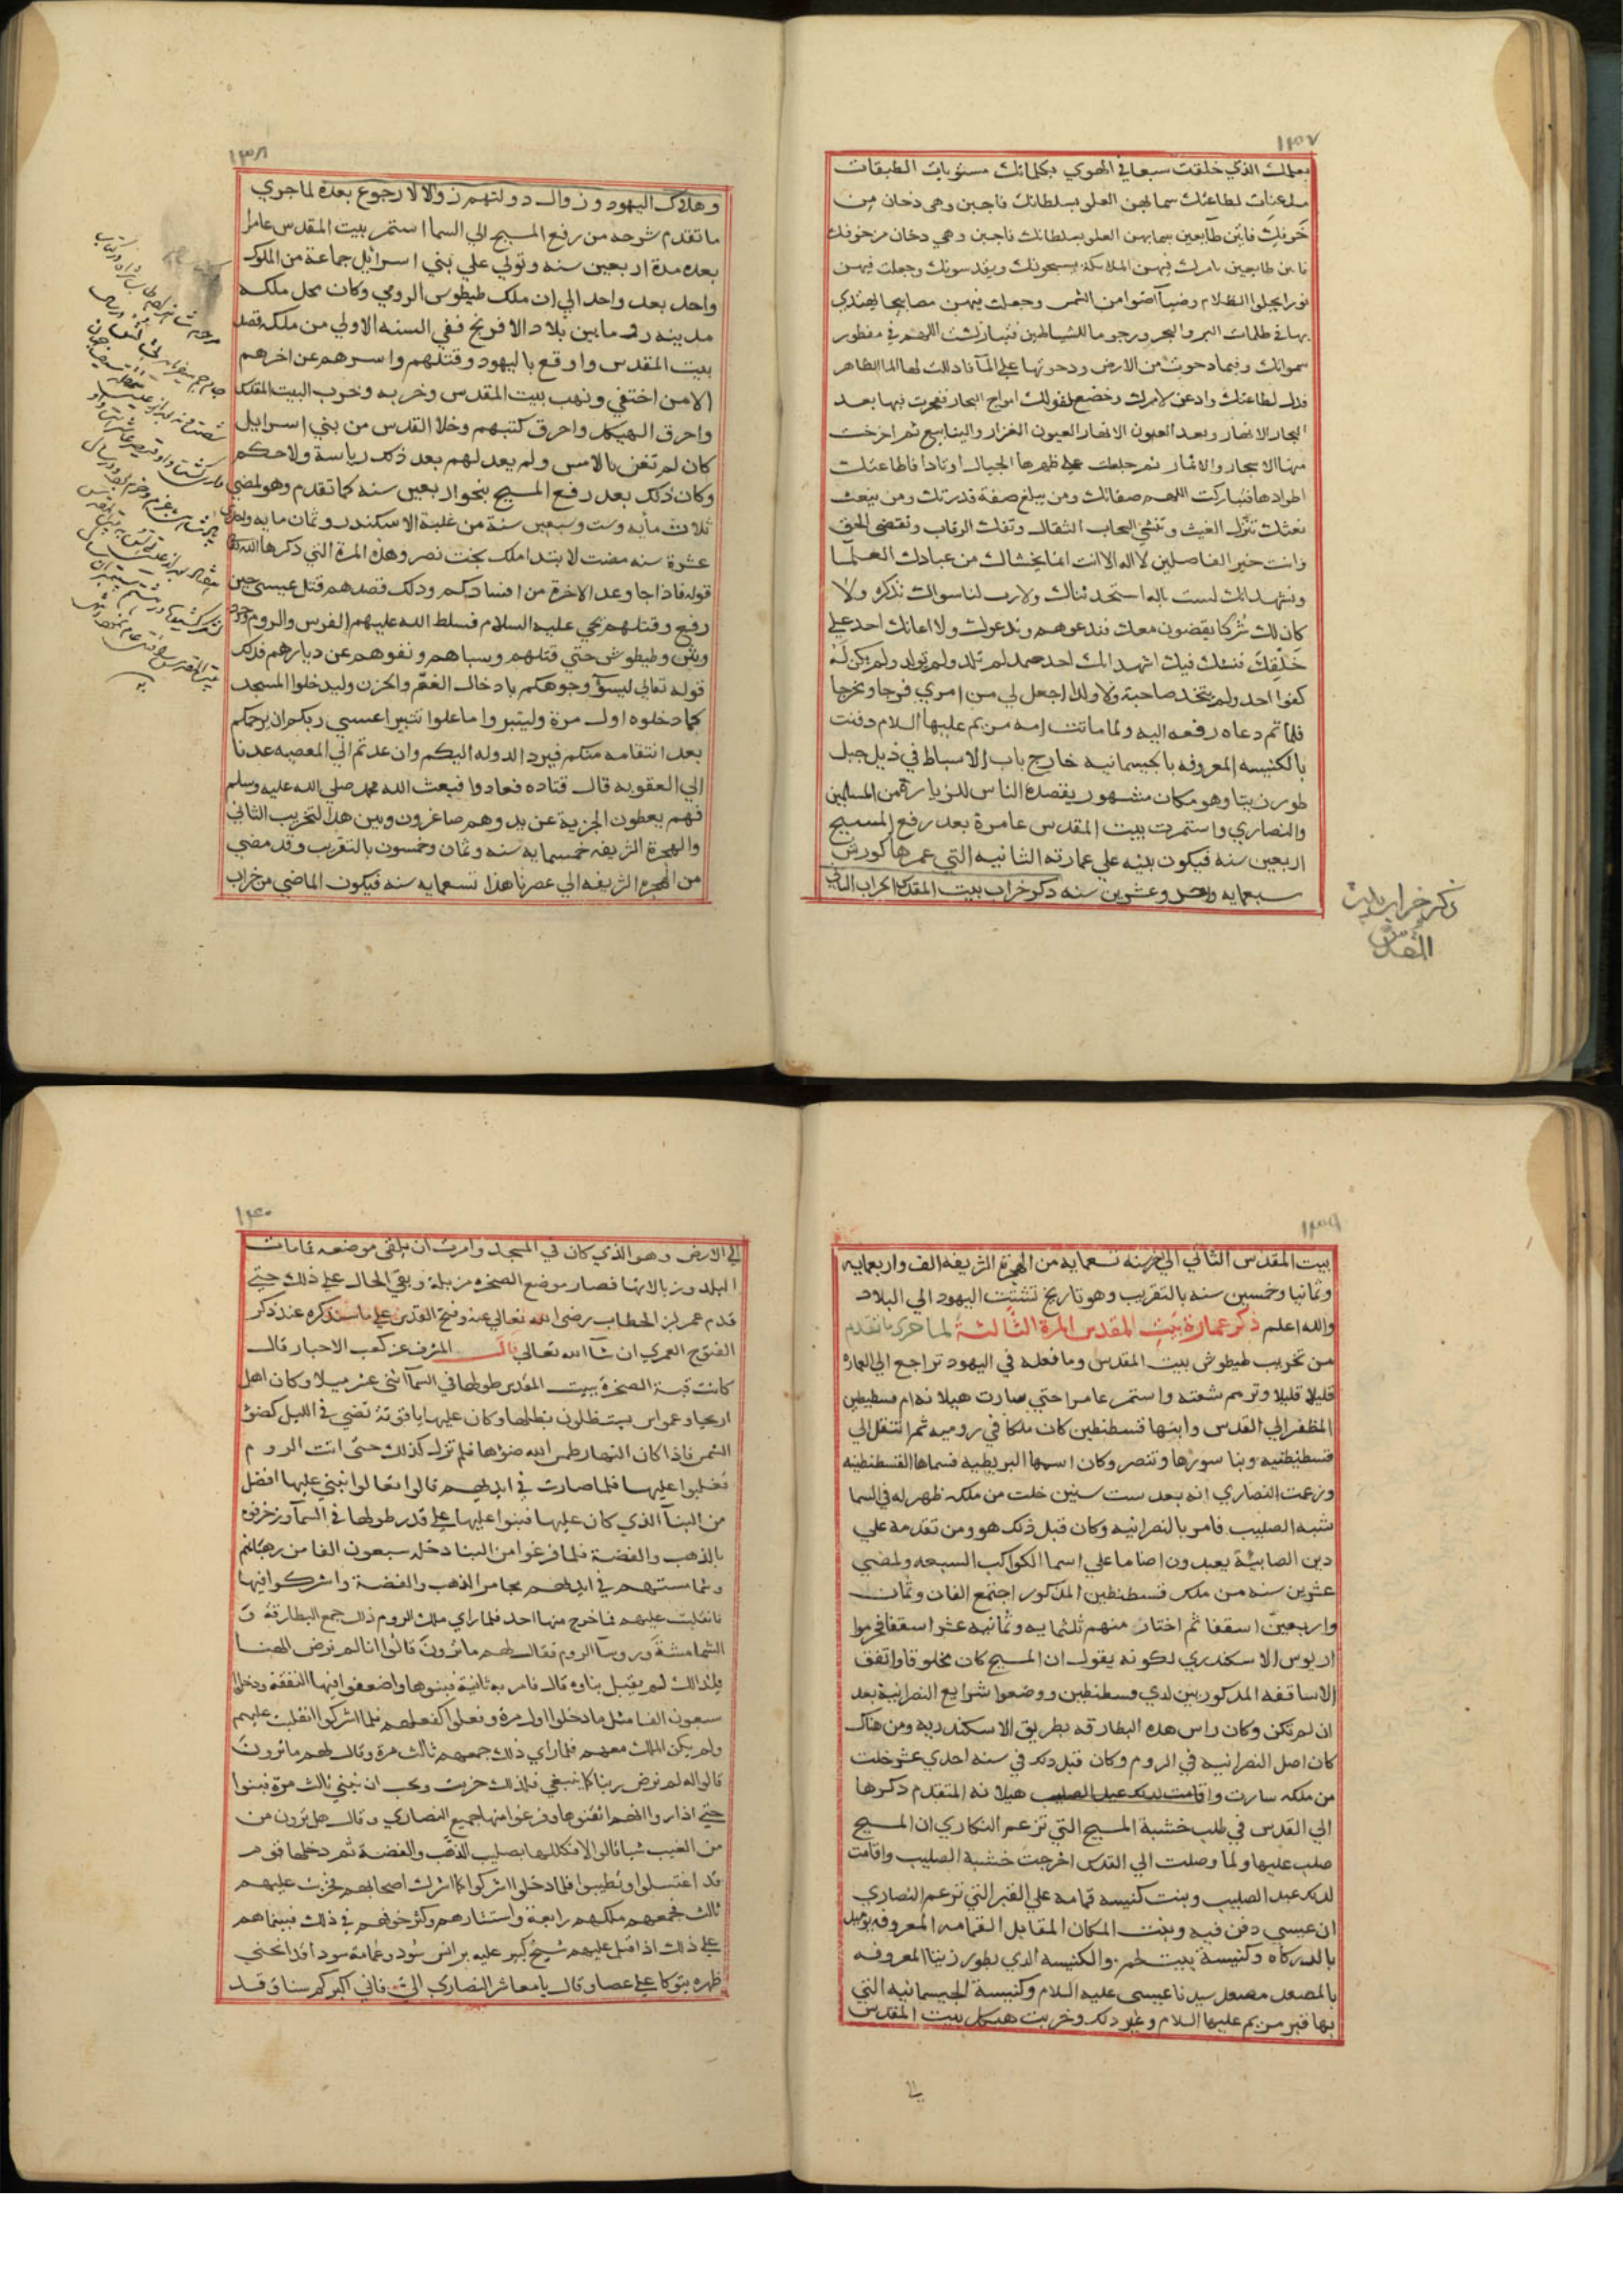 ١٣٧
بعملك الذي خلقت سبعا في الهوي بكلماتك مستويات الطبقات
مذعنات لطاعتك سما لهن العلو بسلطانك فاجبن وهي دخان من
خوفك فاتين طايعين سما بهن العلو بسلطانك فاجبن وهي دخان من خوفك
فاتين طايعين بامرك فيهن الملايكة يسبحونك ويقدسونك وجعلت فيهن
نورا يجلوا الظلام وضيا اضوا من الشمس وجعلت فيهن مصابيح يهتدي
بها في ظلمات البر والبحر ورجوما للشياطين فتباركت اللهم في مفطور
سمواتك وفيما دحوت من الارض ودحوتها علي المآ فاذللت لها الما الظاهر
فذل لطاعتك واذعن لامرك وخضع لقولك امواج البحار ففجرت فيها بعد
البحار الانهار وبعد العيون الانهار العيون الغزار والينابيع ثم اخرجت
منها الاشجار والاثمار ثم جعلت علي ظهرها الجبال اوتادا فاطاعتك
اطوادها فتباركت اللهم صفاتك ومن يبلغ صفة قدرتك ومن ينعت
نعتك تنزل الغيث وتنشي السحاب الثقال وتفك الرقاب وتقضي الحق
وانت خير الفاصلين لا اله الا انت انما يخشاك من عبادك العلمآ
ونشهد انك لست باله استحدثناك ولا رب لنا سواك نذكره ولا
كان لك شركا يقضون معك فندعوهم وندعوك ولا اعانك احد علي
خلقك فنشك فيك اشهد انك احد صمد لم تلد ولم تولد ولم يكن له
كفوا احد ولم يتخذ صاحبة ولا ولدا اجعل لي من امري فرجا ومخرجا
فلما تم دعاه رفعه اليه ولما ماتت امه مريم عليها السلام دفنت
بالكنيسه المعروفه بالجيسمانيه خارج باب الاسباط في ذيل جبل
طور زيتا وهو مكان مشهور يقصده الناس للزيارة من المسلمين
والنصاري واستمرت بيت المقدس عامرة بعد رفع المسيح
اربعين سنه فيكون لبثه علي عمارته الثانيه التي عمرها كورش
سبعمايه واحد وعشرين سنه ذكر خراب بيت المقدس الخراب الثاني
ذكر خراب بيت
المقدس
١٣٨
وهلاك اليهود وزوال دولتهم زوالا لا رجوع بعده لما جري
ما تقدم شرحه من رفع المسيح الي السما استمر بيت المقدس عامرا
بعده مدة اربعين سنه وتولي علي بني اسرائيل جماعة من الملوك
واحد بعد واحد الي ان ملك طيطوس الرومي وكان محل ملكه
مدينه روما بين بلاد الافرنج ففي السنه الاولي من ملكه قصد
بيت المقدس واوقع باليهود وقتلهم واسرهم عن اخرهم
الا من اختفي ونهب بيت المقدس وخربه وخرب البيت المقدس
واحرق الهيكل واحرق كتبهم وخلا القدس من بني اسرايل
كان لم تغن بالامس ولم يعد لهم بعد ذلك رياسة ولا حكم
وكان ذلك بعد رفع المسيح بنحو اربعين سنه كما تقدم وهو لمضي
ثلاث مأيه وست وسبعين سنة من غلبة الاسكندر وثمان مايه واحدي
عشرة سنه مضت لابتدا ملك بخت نصر وهذه المرة التي ذكرها الله
قوله فاذا جا وعد الاخرة من افسادكم وذلك قصدهم قتل عيسي حين
رفع وقتلهم يحي عليه السلام فسلط الله عليهم الفرس والروم
وطيطوش حتي قتلهم وسباهم ونفوهم عن ديارهم فذلك
قوله تعالي ليسؤ وجوهكم بادخال الغم والحزن وليدخلوا المسجد
كما دخلوه اول مرة وليتبروا ما علوا تتبيرا عسي ربكم ان يرحمكم
بعد انتقامه منكم فيرد الدوله اليكم وان عدتم الي المعصيه عدنا
الي العقوبه قال قتاده فعادوا فبعث الله محمد صلي الله عليه وسلم
فهم يعطون الجزية عن يد وهم صاغرون وبين هذا التخريب الثاني
والهجرة الشريفه خمسمايه سنه وثمان وخمسون بالتقريب وقد مضي
من الهجره الشريفه الي عصرنا هذا تسعمايه سنه فيكون الماضي من خراب
١٣٩
بيت المقدس الثاني الي اخر سنه تسعمايه من الهجرة الشريفه الف واربعمايه
وثمانيا وخمسين سنه بالتقريب وهو تاريخ تشتيت اليهود الي البلاد
والله اعلم ذكر عمارة بيت المقدس المرة الثالثة لما جري ما تقدم
من تخريب طيطوش بيت المقدس وما فعله في اليهود تراجع الي العمارة
قليلا قليلا وترمم شعثه واستمر عامرا حتي صارت هيلانه ام قسطنطين
المظفر الي القدس وابنها قسطنطين كان ملكا في روميه ثم انتقل الي
قسطنطنيه وبنا سورها وتنصر وكان اسمها البزنطيه فسماها القسطنطينه
وزعمت النصاري انه بعد ست سنين خلت من ملكه ظهر له في السما
شبه الصليب فامر بالنصرانيه وكان قبل ذلك هو ومن تقدمه علي
دين الصابئة يعبدون اصناما علي اسما الكواكب السبعه ولمضي
عشرين سنه من ملك قسطنطين المذكور اجتمع الفان وثمان
واربعين اسقفا ثم اختار منهم ثلثمايه وثمانيه عشر اسقفا فحرموا
اريوس الاسكندري لكونه يقول ان المسيح كان مخلوقا واتفق
الاساقفه المذكورين لدي قسطنطين ووضعوا شرايع النصرانية بعد
ان لم تكن وكان راس هذه البطارقه بطريق الاسكندريه ومن هناك
كان اصل النصرانيه في الروم وكان قبل ذلك في سنه احدي عشر خلت
من ملكه سارت واقامت لذلك عيد الصليب هيلانه المتقدم ذكرها
الي القدس في طلب خشبة المسيح التي تزعم النكاري ان المسيح
صلب عليها ولما وصلت الي القدس اخرجت خشبة الصليب واقامت
لذلك عيد الصليب وبنت كنيسه قمامه علي القبر التي تزعم النصاري
ان عيسي دفن فيه وبنت المكان المقابل القمامه المعروفه يوميذ
بالدركاه وكنيسة بيت لحم والكنيسه الذي بطور زيتا المعروفه
بالمصعد مصعد سيدنا عيسي عليه السلام وكنيسة الجيسمانيه التي
بها قبر مريم عليها السلام وغير ذلك وخربت هيكل بيت المقدس
الي
١٤٠
الي الارض وهو الذي كان في المسجد وامرت ان يلقي موضعه قمامات
البلد وزبالاتها فصار موضع الصخره مزبلة وبقي الحال علي ذلك حتي
قدم عمر ابن الخطاب رضي الله تعالي عنه وفتح القدس علي ما سنذكره عند ذكر
الفتوح العمري ان شآ الله تعالي قال المشرف عن كعب الاحبار قال
كانت قبة الصخرة ببيت المقدس طولها في السمآ اثني عشر ميلا وكان اهل
اريحا وعمواس يستظلون بظلها وكان عليها ياقوتة تضي في الليل كضو
الشمس فاذا كان النهار طمس الله ضوها فلم تزل كذلك حتي اتت الروم
فغلبوا عليها فلما صارت في ايديهم قالوا تعالوا نبني عليها افضل
من البنآ الذي كان عليها فبنوا عليها علي قدر طولها في السمآ وزخرفوه
بالذهب والفضة فلما فرغوا من البنا دخله سبعون الفا من رهبانهم
وشمامستهم في ايديهم مجامر الذهب والفضة واشركوا فيها
فانقلبت عليهم فما خرج منها احد فلما راي ملك الروم ذلك جمع البطارقة و
الشمامشة وروسآ الروم فقال لهم ما ترون قالوا انا لم نرض الهنا
فلذلك لم يقبل بناوه قال فامر به ثانية فبنوها واضعفوا فيها النفقة ودخلها
سبعون الفا مثل ما دخلوا اول مرة وفعلوا كفعلهم فلما اشركوا انقلبت عليهم
ولم يكن الملك معهم فلما راي ذلك جمعهم ثالث مرة وقال لهم ما ترون
قالوا له لم نرض ربنا كما ينبغي فلذلك خربت ونحب ان نبني ثالث مرة فبنوا
حتي اذا راوا انهم اتقنوها وفرغوا منها جميع النصاري وقال هل ترون من
من العيب شيا قالوا لا فكللها بصليب الذهب والفضة ثم دخلها قوم
قد اغتسلوا وتطيبوا فلما دخلوا اشركوا كما اشرك اصحابهم فخربت عليهم
ثالث فجمعهم ملكهم رابعة واستشارهم وكثر خوضهم في ذلك فبينما هم
علي ذلك اذ اقبل عليهم شيخ كبير عليه برانس سود وعمامة سودا قد انحني
ظهره يتوكا علي عصا وقال يا معاشر النصاري الي فاني اكبركم سنا وقد